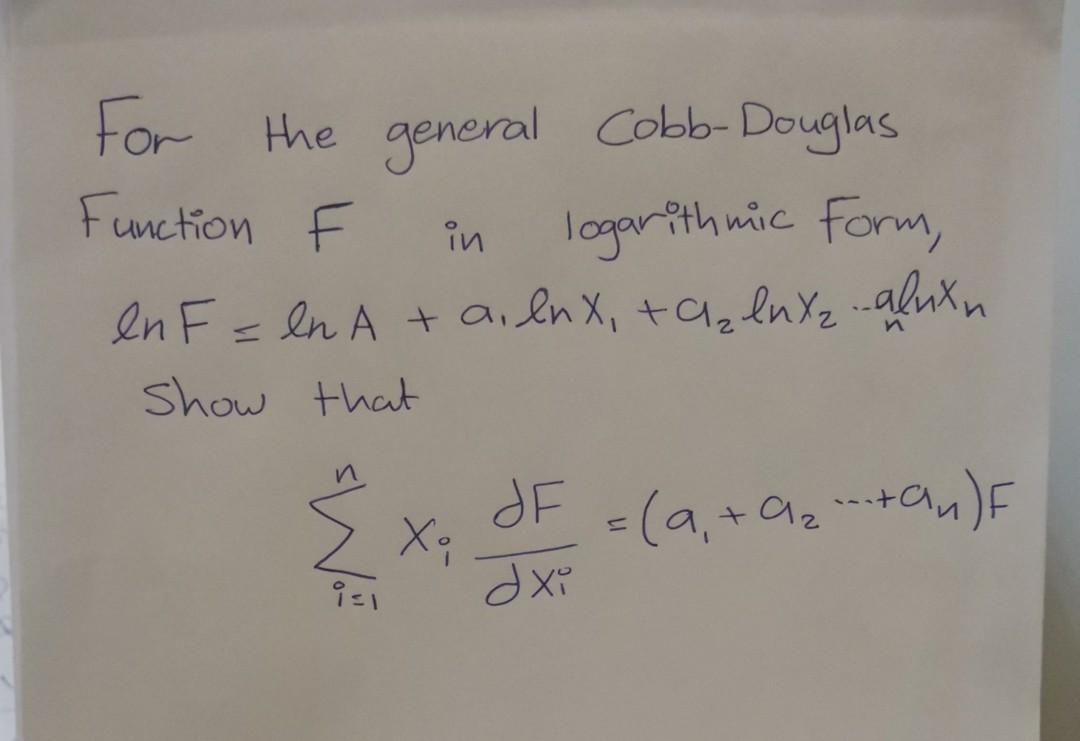 For the general Cobb-Douglas
Function F in logarithmic Form,
ln F = ln A + a₁ ln X₁ + a₂ ln X₂ ... aₙ ln Xₙ
Show that
∑ⁿᵢ₌₁ Xᵢ dF/dxᵢ = (a₁ + a₂ ... + aₙ)F